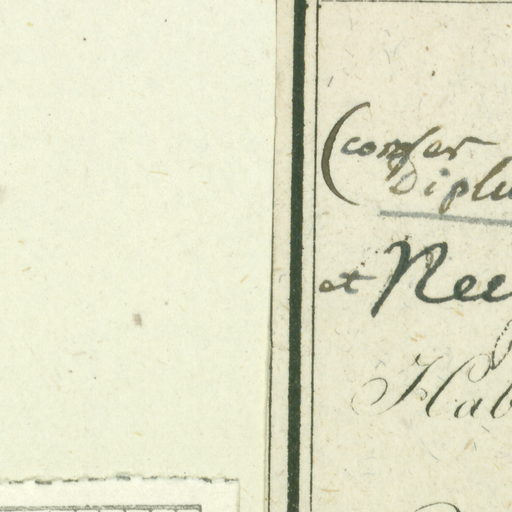 (confer
Diplu
at Nee
Hab